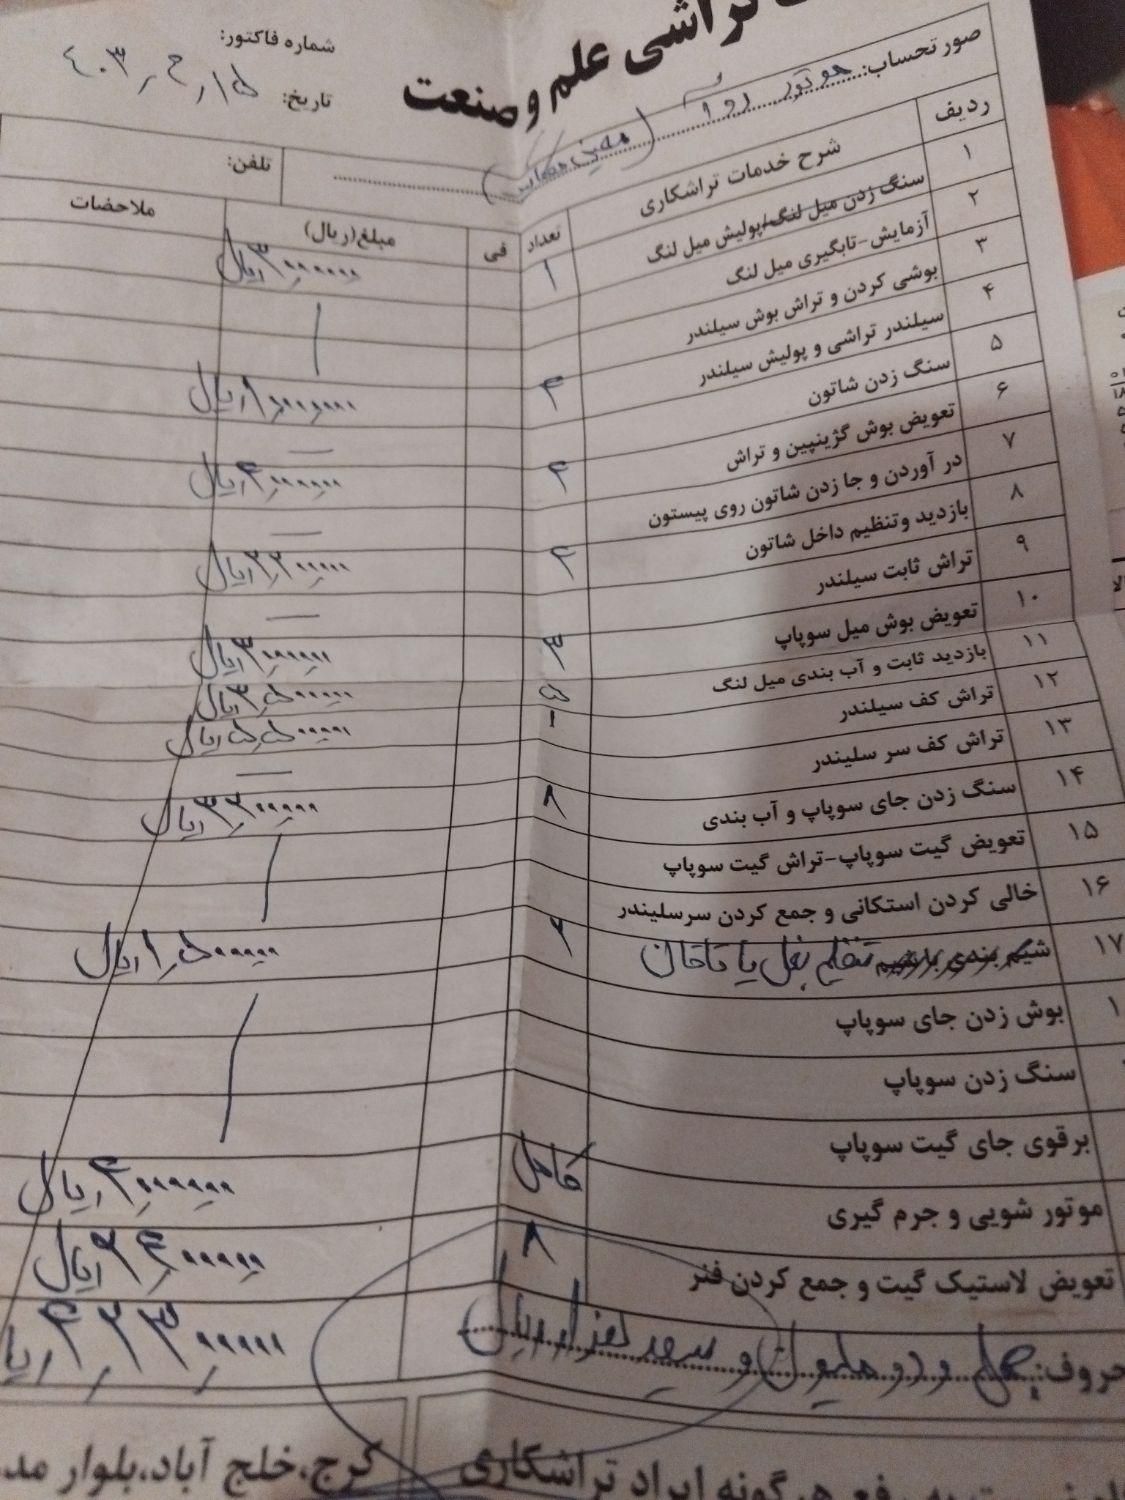 تراشی علم و صنعت
شماره فاکتور:
تاریخ: ۴۰۳٫۲٫۱۵
صورتحساب: موتور روآ
تلفن:
ردیف شرح خدمات تراشکاری تعداد فی مبلغ(ریال) ملاحضات
۱ سنگ زدن میل لنگ/پولیش میل لنگ ۱ ۳٫۰۰۰٫۰۰۰ ریال
۲ آزمایش-تابگیری میل لنگ
۳ بوشی کردن و تراش بوش سیلندر
۴ سیلندر تراشی و پولیش سیلندر ۴ ۱۰٫۰۰۰٫۰۰۰ ریال
۵ سنگ زدن شاتون
۶ تعویض بوش گژینپین و تراش ۴ ۴٫۰۰۰٫۰۰۰ ریال
۷ در آوردن و جا زدن شاتون روی پیستون
۸ بازدید وتنظیم داخل شاتون ۴ ۳٫۲۰۰٫۰۰۰ ریال
۹ تراش ثابت سیلندر
۱۰ تعویض بوش میل سوپاپ ۳ ۳٫۰۰۰٫۰۰۰ ریال
۱۱ بازدید ثابت و آب بندی میل لنگ ۵ ۳٫۵۰۰٫۰۰۰ ریال
۱۲ تراش کف سیلندر ۱ ۵٫۵۰۰٫۰۰۰ ریال
۱۳ تراش کف سر سلیندر
۱۴ سنگ زدن جای سوپاپ و آب بندی ۸ ۳٫۲۰۰٫۰۰۰ ریال
۱۵ تعویض گیت سوپاپ-تراش گیت سوپاپ
۱۶ خالی کردن استکانی و جمع کردن سرسلیندر
۱۷ تنظیم بغل یاتاقان ۲ ۱٫۵۰۰٫۰۰۰ ریال
بوش زدن جای سوپاپ
سنگ زدن سوپاپ
برقوی جای گیت سوپاپ
موتور شویی و جرم گیری کامل ۴٫۰۰۰٫۰۰۰ ریال
تعویض لاستیک گیت و جمع کردن فنر ۸
حروف: چهل و دو میلیون و سیصد هزار ریال ۴۲٫۳۰۰٫۰۰۰
رفع هرگونه ایراد تراشکاری
کرج،خلج آباد،بلوار